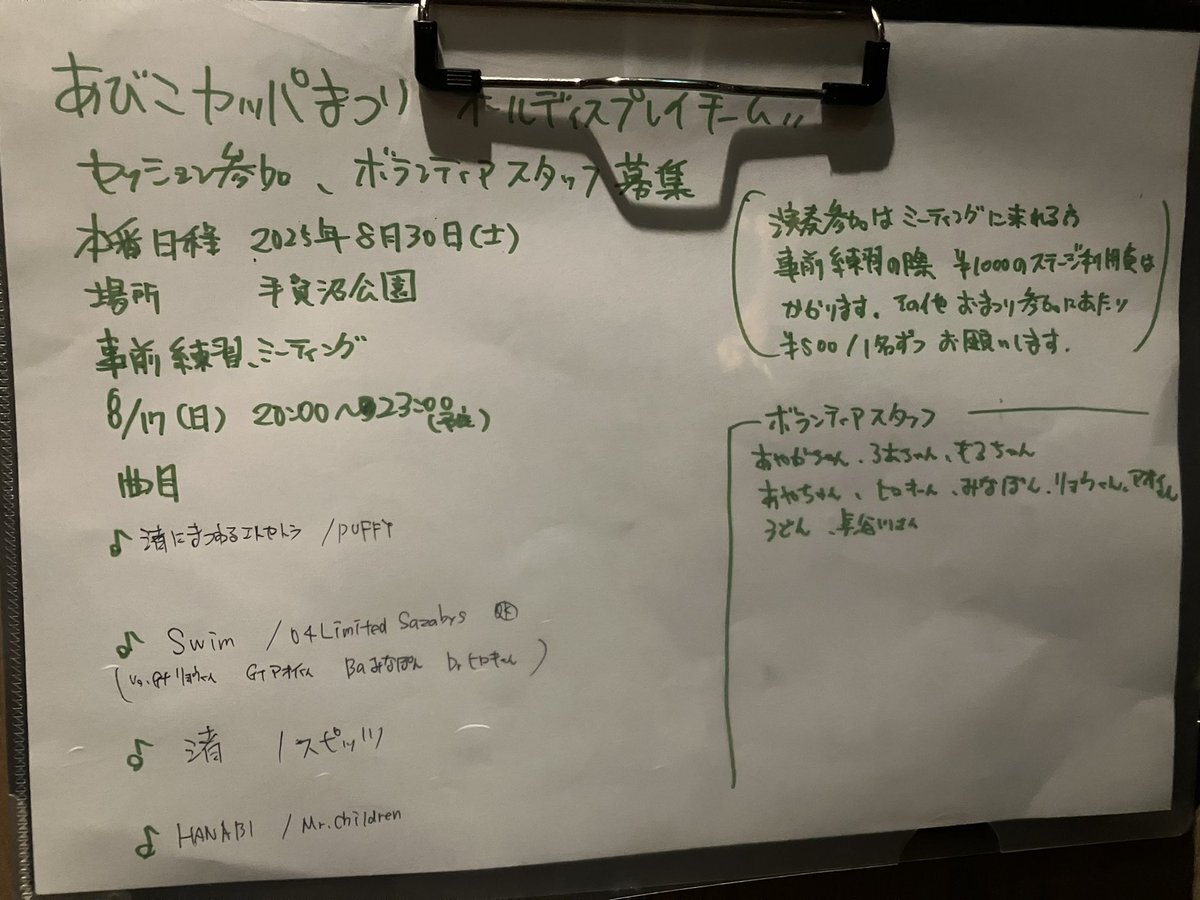 あびこカッパまつり オールディスプレイチーム!!
セッション参加、ボランティアスタッフ募集
本番日程 2025年8月30日(土)
場所 手賀沼公園
事前練習、ミーティング
8/17(日) 20:00〜23:00(予定)
曲目
♪ 渚にまつわるエトセトラ /PUFFY
♪ Swim /04 Limited Sazabys
(Vo.Gt リョウくん Gt アオイくん Ba みなぽん Dr ヒロキーん)
♪ 渚 /スピッツ
♪ HANABI /Mr.Children
(演奏参加はミーティングに来れる方
事前練習の際 ¥1000のステージ利用費は
かかります。その他 おまつり参加にあたり
¥500/1名ずつ お願いします.)
ボランティアスタッフ
あやかちゃん、るあちゃん、もるちゃん
あやちゃん、ヒロキーん、みなぽん、リョウくん、アオイくん
うどん、長谷川さん